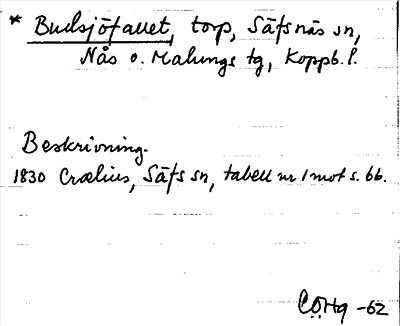 * Budsjötallet, torp, Säfsnäs sn,
Nås o. Malungs tg, Koppb. l.
Beskrivning.
1830 Crælius, Säfs sn, tabell nr 1 mot s. 66.
C.Ö.Hg -62